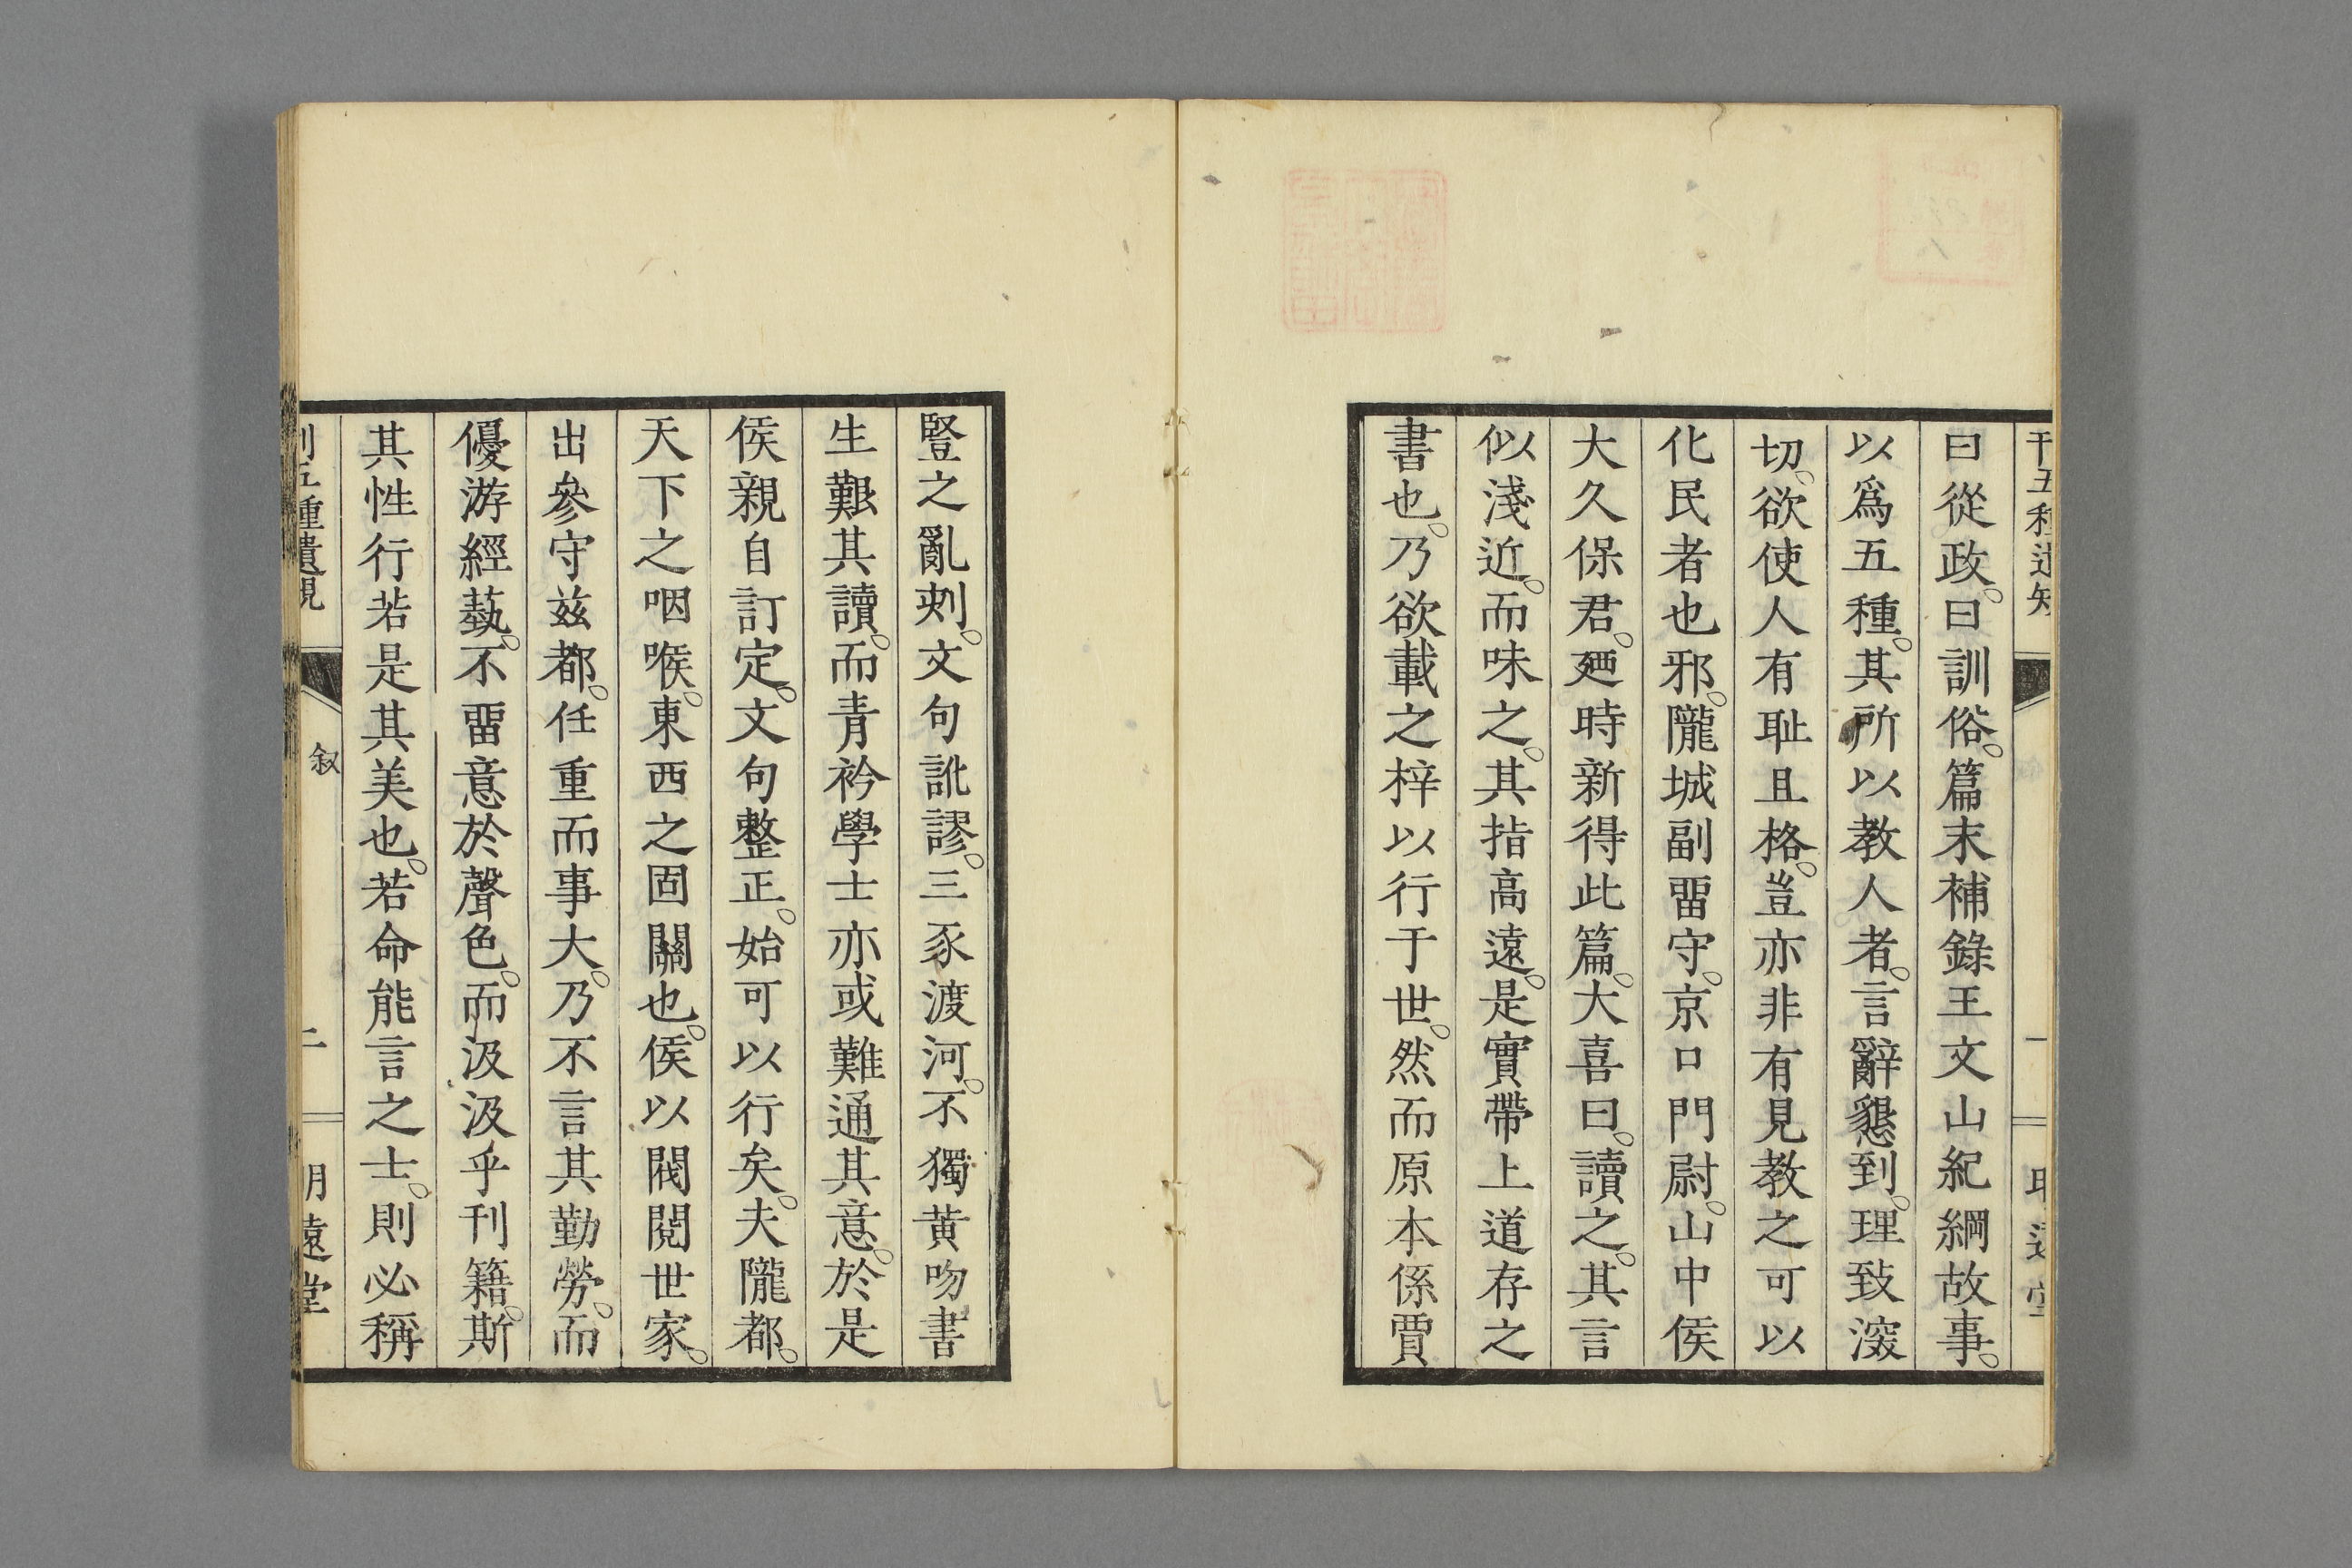 曰從政。曰訓俗。篇末補錄王文山紀綱故事。
以爲五種。其所以教人者。言辭懇到。理致湥
切。欲使人有耻且格。豈亦非有見教之可以
化民者也邪。隴城副畱守。京口門尉。山中侯
大久保君。廼時新得此篇。大喜曰。讀之。其言
似淺近。而味之。其指高遠。是實帶上道存之
書也。乃欲載之梓以行于世。然而原本係賈
豎之亂刾。文句訛謬。三豕渡河。不獨黄吻書
生艱其讀。而青衿學士亦或難通其意。於是
侯親自訂定。文句整正。始可以行矣。夫隴都。
天下之咽喉。東西之固關也。侯以閥閱世家。
出參守兹都。任重而事大。乃不言其勤勞。而
優游經藝。不畱意於聲色。而汲汲乎刊籍。斯
其性行若是其美也。若命能言之士。則必稱
叙
二